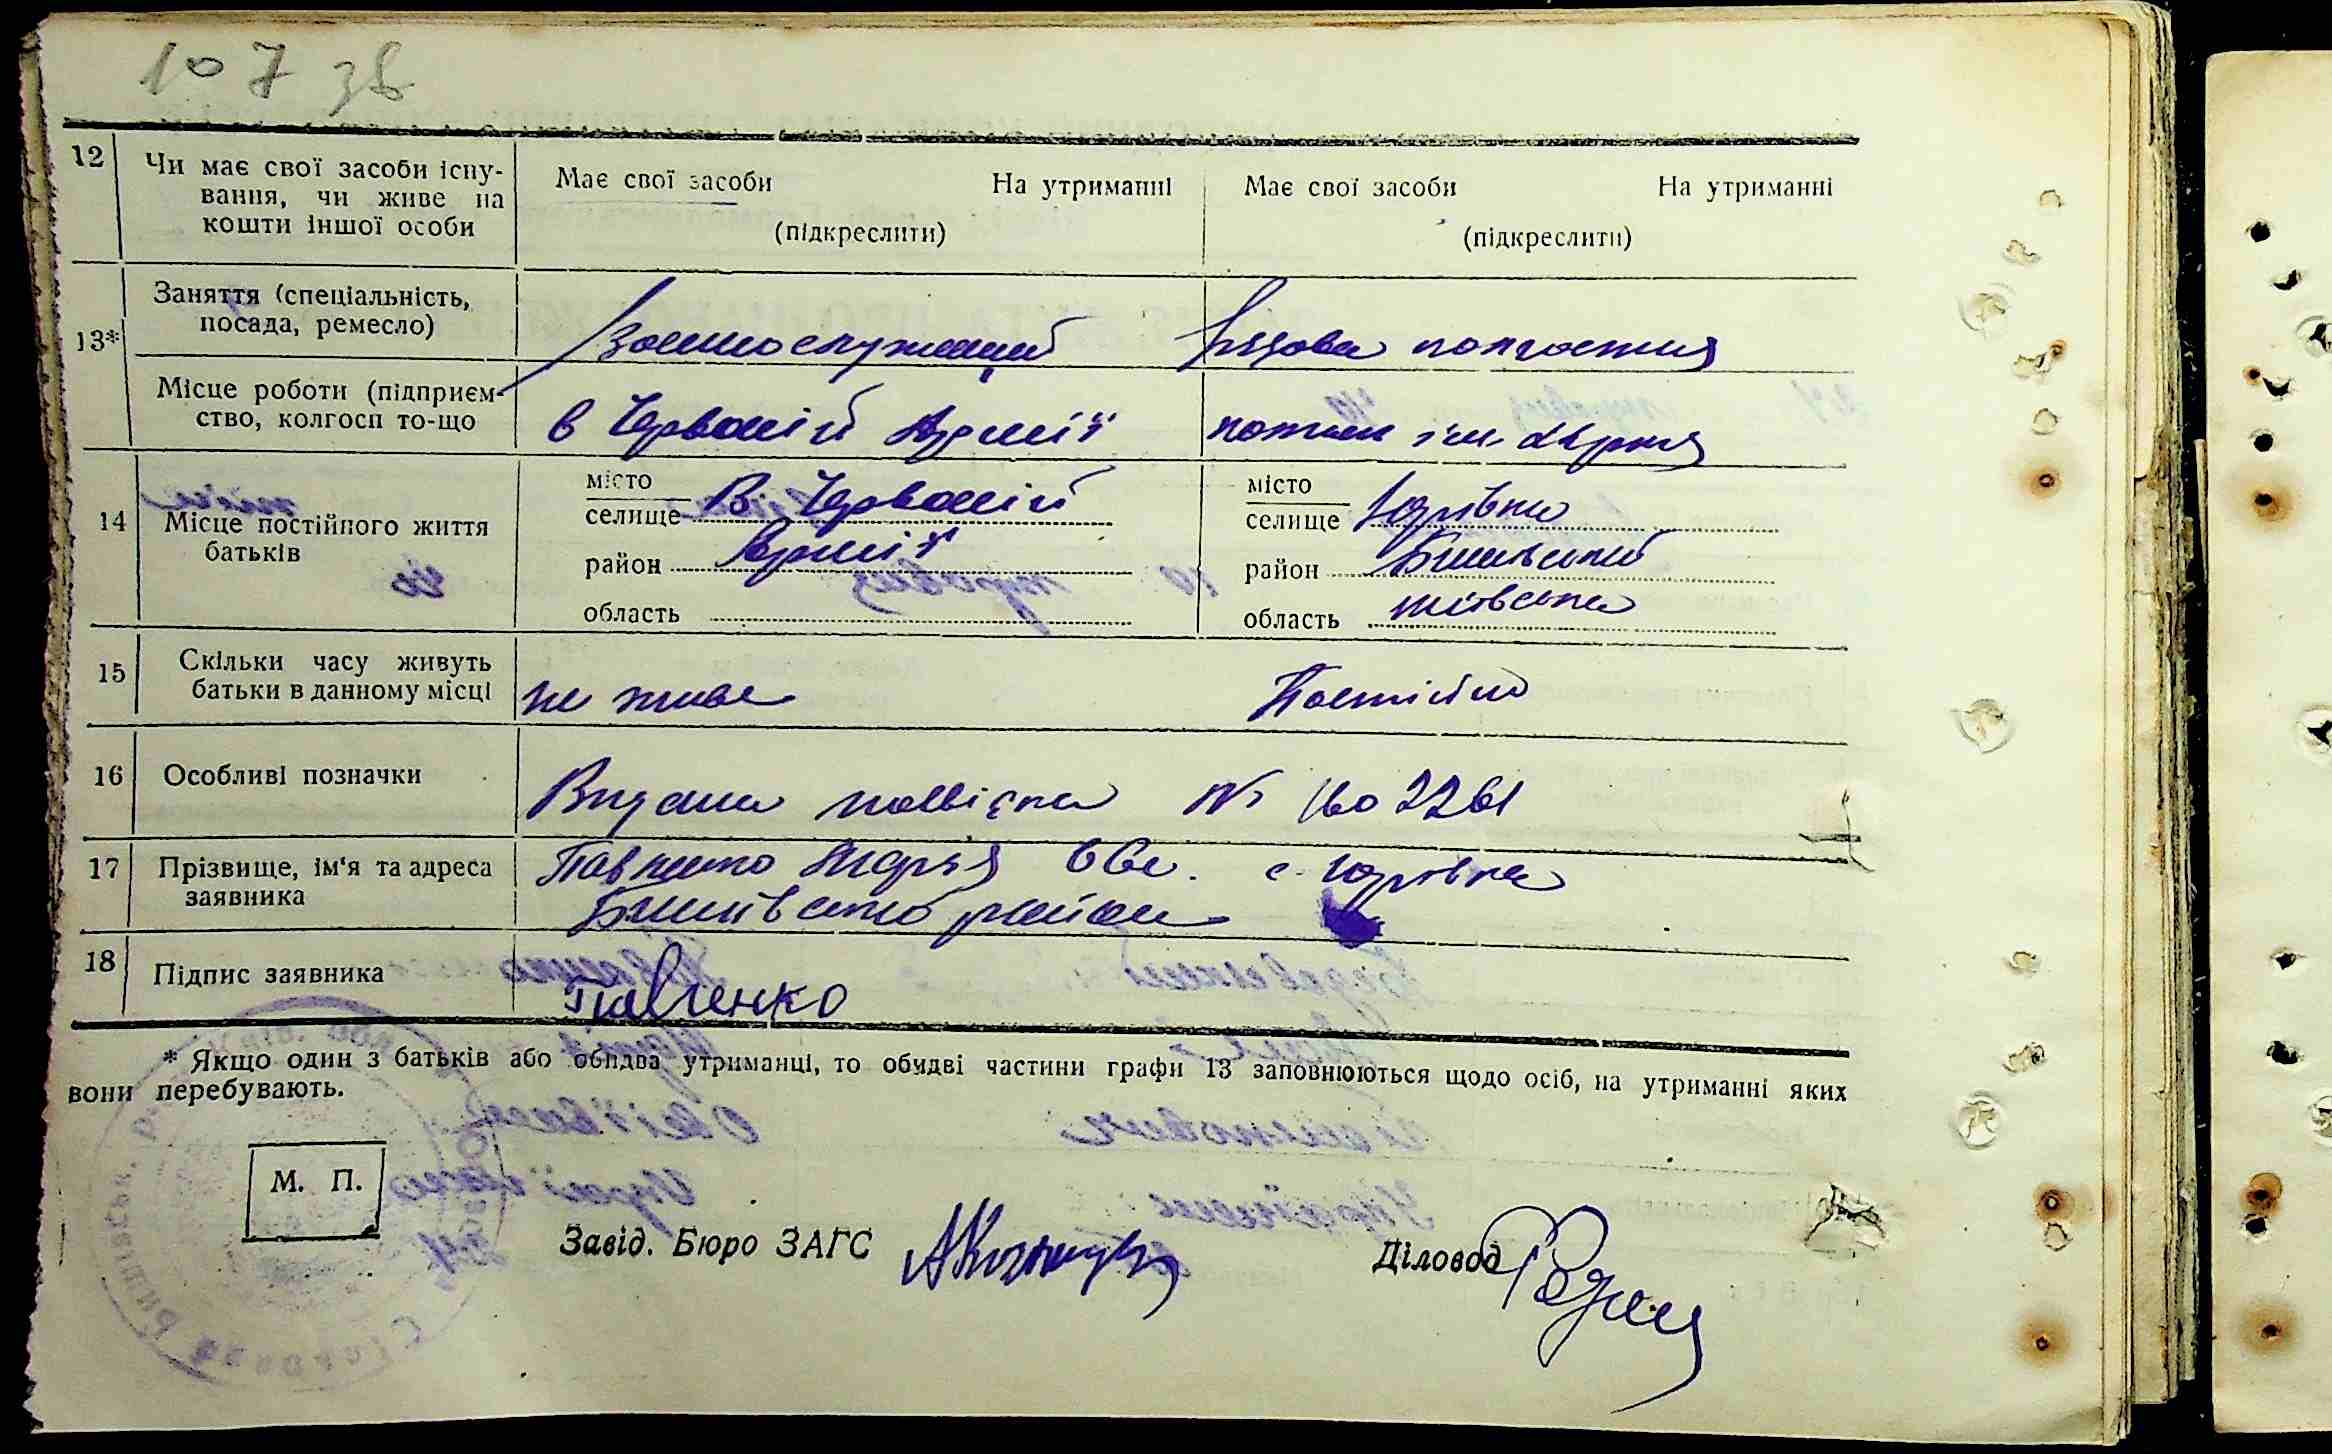 107 зв
12
Чи має свої засоби існу-
вання, чи живе на
кошти іншої особи
Має свої засоби На утриманні
(підкреслити)
Має свої засоби На утриманні
(підкреслити)
13*
Заняття (спеціальність,
посада, ремесло)
Воєннослужащий
Рядова колгоспниця
Місце роботи (підприєм-
ство, колгосп то-що
в Червоній Армії
колгосп ім.
14
Місце постійного життя
батьків
місто
селище В. Червоній
район Армії
область
місто
селище Юрівка
район Бишівський
область Київська
15
Скільки часу живуть
батьки в данному місці
не живе
Постійно
16
Особливі позначки
Видана повістка №
17
Прізвище, ім‘я та адреса
заявника
Павленко Марія с. Юрівка
Бишівського району
18
Підпис заявника
Павленко
* Якщо один з батьків або обидва утриманці, то обидві частини графи 13 заповнюються щодо осіб, на утриманні яких
вони перебувають.
М. П.
Завід. Бюро ЗАГС
Діловод